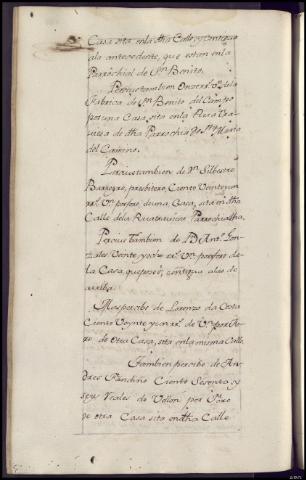 Casa sita en la dha Calle, y contigua
ala antecedente, que estan en la
Parrochial de Sn. Benito.
Percive tambien Onze rrs. Vn. de la
Fabrica de Sn. Benito del Campo
por una Casa, sita en la Rua Tra
viesa de dha Parrochia de Sta Maria
del Camino.
Percive tambien de Dn. Silbestre
Barreyro, presbitero, Ciento Veinte y un
rrs. Vn. por foro, de una Casa, sita en dha
Calle de la Ruatraviesa Parrochia dha.
Percive tambien de Dn. Anto. Gon
zales Veinte, y ocho rrs. Vn. por foro de
la Casa, que posee, contigua a las de
arriba.
Mas percibe de Lorenzo da Costa
Ciento Veynte y quatro rrs. de Vn. por fo
ro de Otra Casa, sita en la misma Calle.
Tambien percibe de An
dres Fandiño Ciento Sesenta, y
seys Reales de Vellon por foro
de otra Casa sita en dha Calle